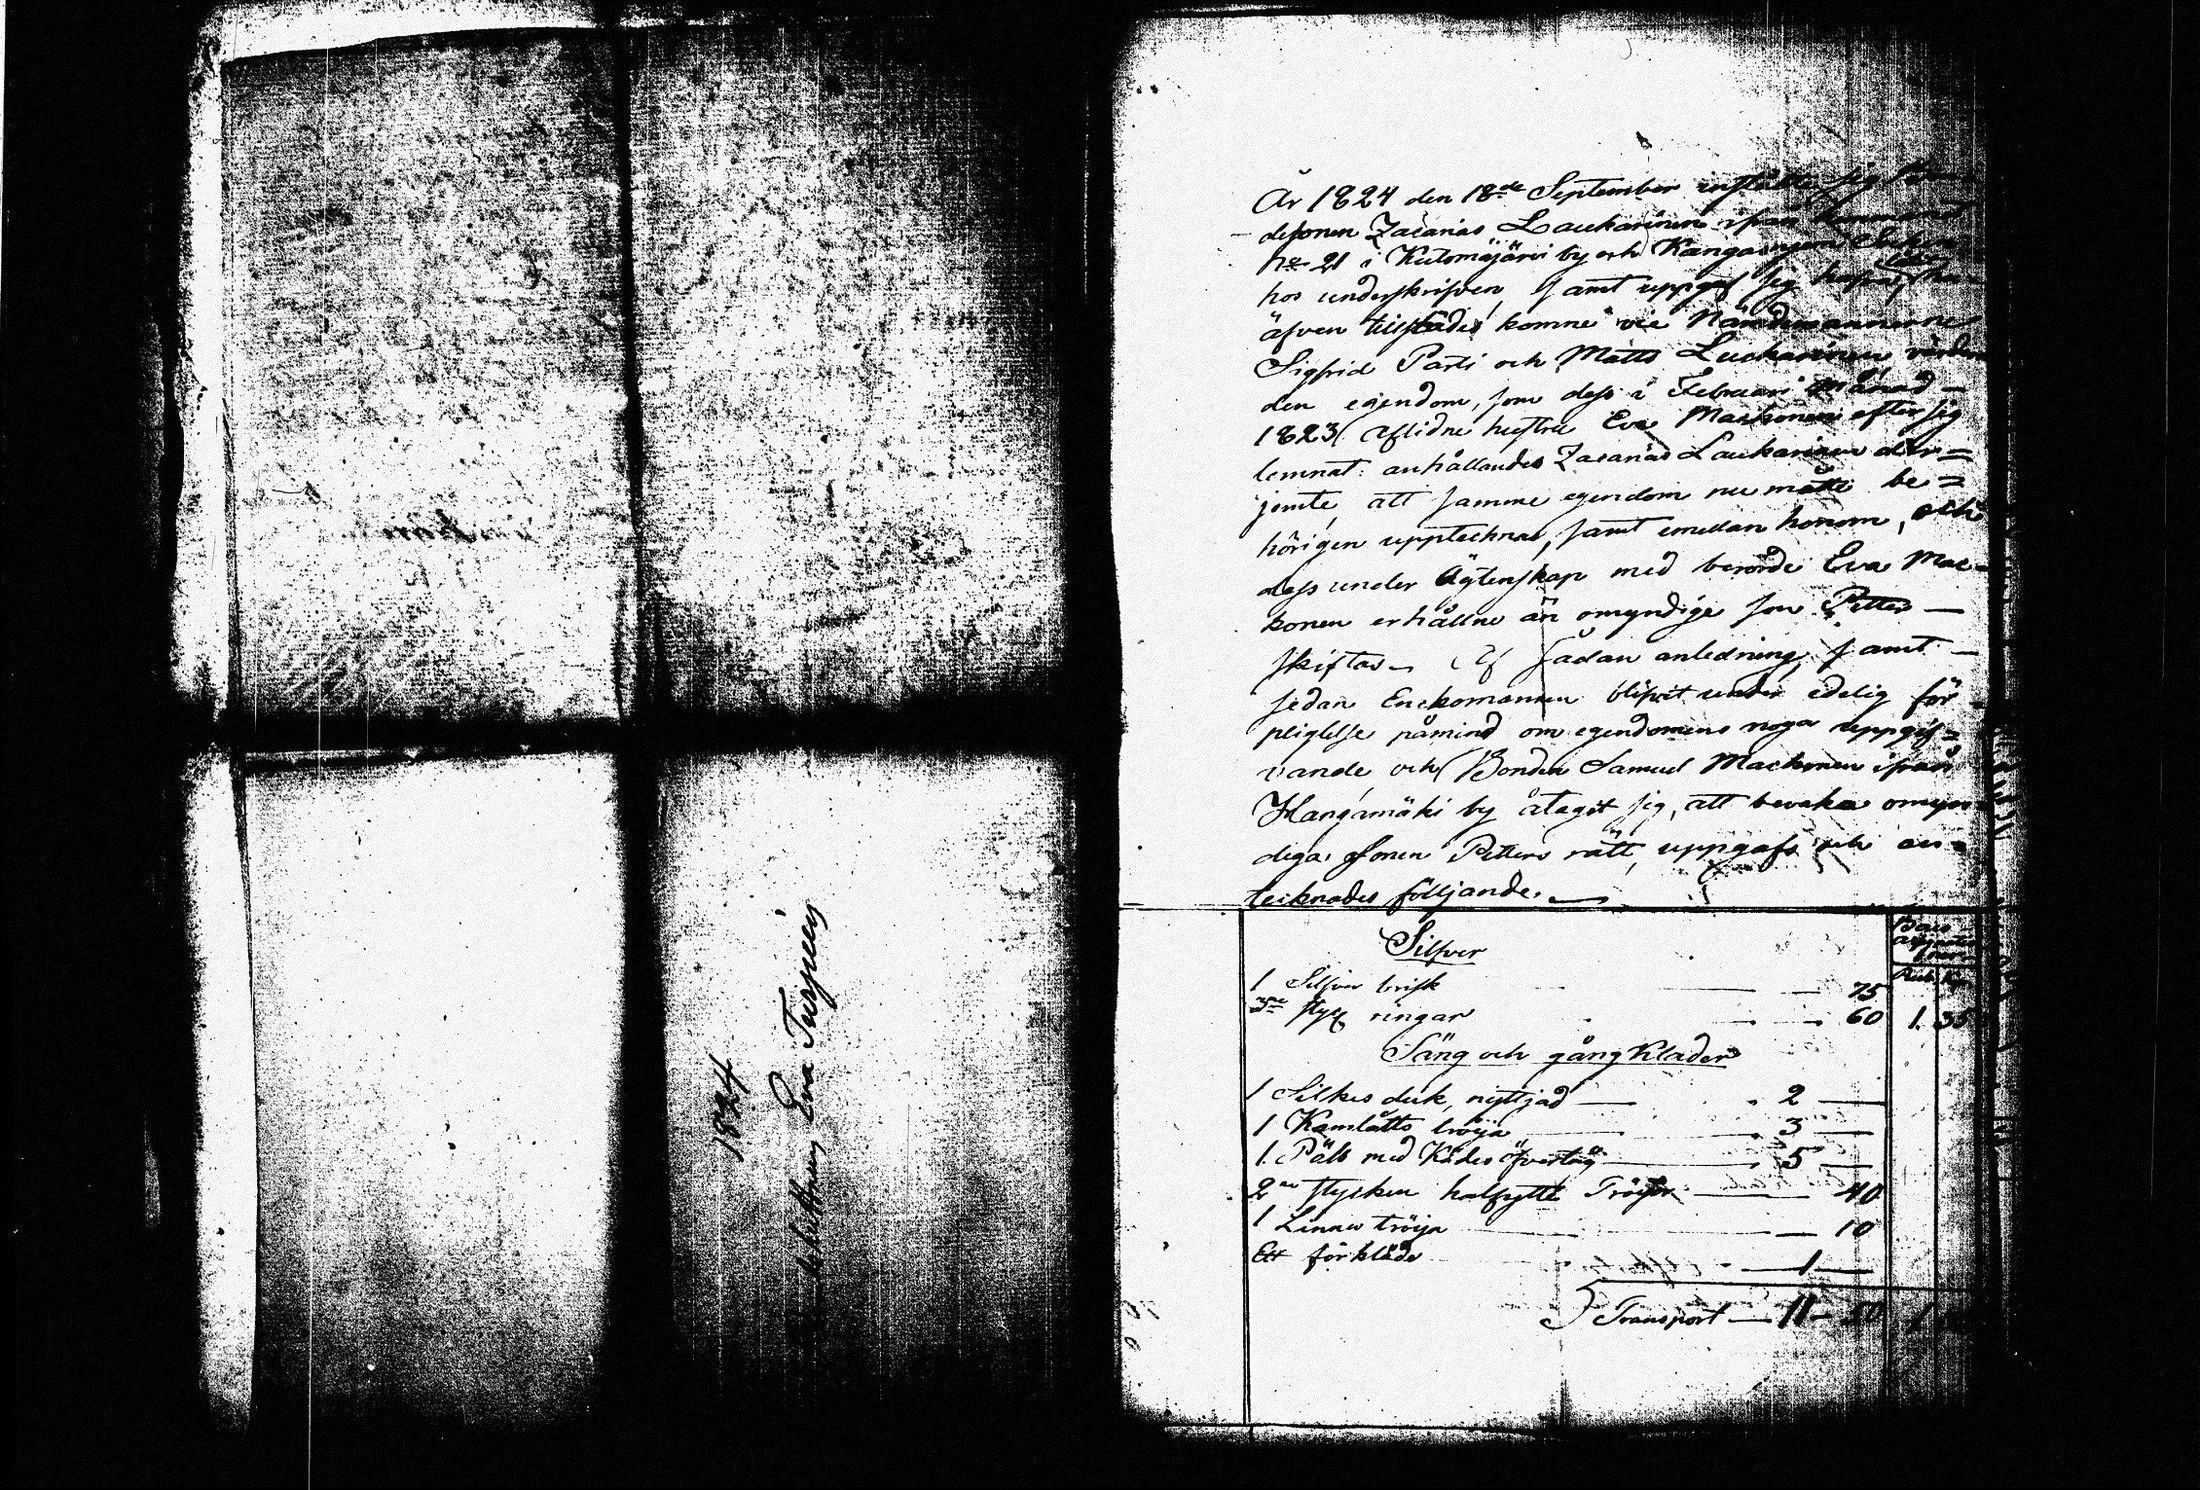 1824
Eva Turpein
År 1824 den 18de September instälte sig
desonen Zacarias Laukarinen ifrån hemmanet
No 21 i Kutomäjärvi by och Kangasnjemi Sokn
hos underskrifven, samt uppgaf sig hafva
äfven tillstädes komne vie Nämndemännerne
Sigfrid Parti och Matts Luckarinen värdera
den egendom, som dess i Februari Månad
1823 aflidne hustru Eva Mackonen efter sig
lemnat: anhållandes Zacarias Laukarinen der=
jemte, att samme egendom nu måtte be=
hörigen upptecknas, samt emellan honom, och
dess under ägtenskap med berörde Eva Mac=
konen erhållne än omyndige son Petter —
skiftas — Af sådan anledning, samt —
sedan Enckomannen blifvit under edelig för
pligtelse påmind om egendomens noga uppgif=
vande och Bonden Samuel Mackonen ifrån
Hangamäki by åtagit sig, att bevaka omyn
diga Sonen Petters rätt, uppgafs och an=
tecknades följande. —
Silfver
1 Silfver brisk — 75
3ne styck ringar — 60 1. 35
Säng och gångkläder
1 Silkes duk, nyttjad — 2 —
1 Kamlåtts tröija — 3 —
1. Päls med Klädes öfvertåg — 5 —
2ne stycken halfyllt Tröijor — 40
1 Linne tröija — 10
Ett förkläde — 1 —
Transport — 11 — 50 1